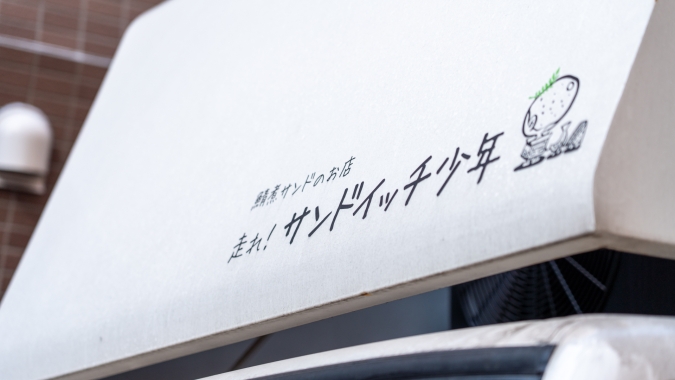 鯖煮サンドのお店
走れ!サンドイッチ少年